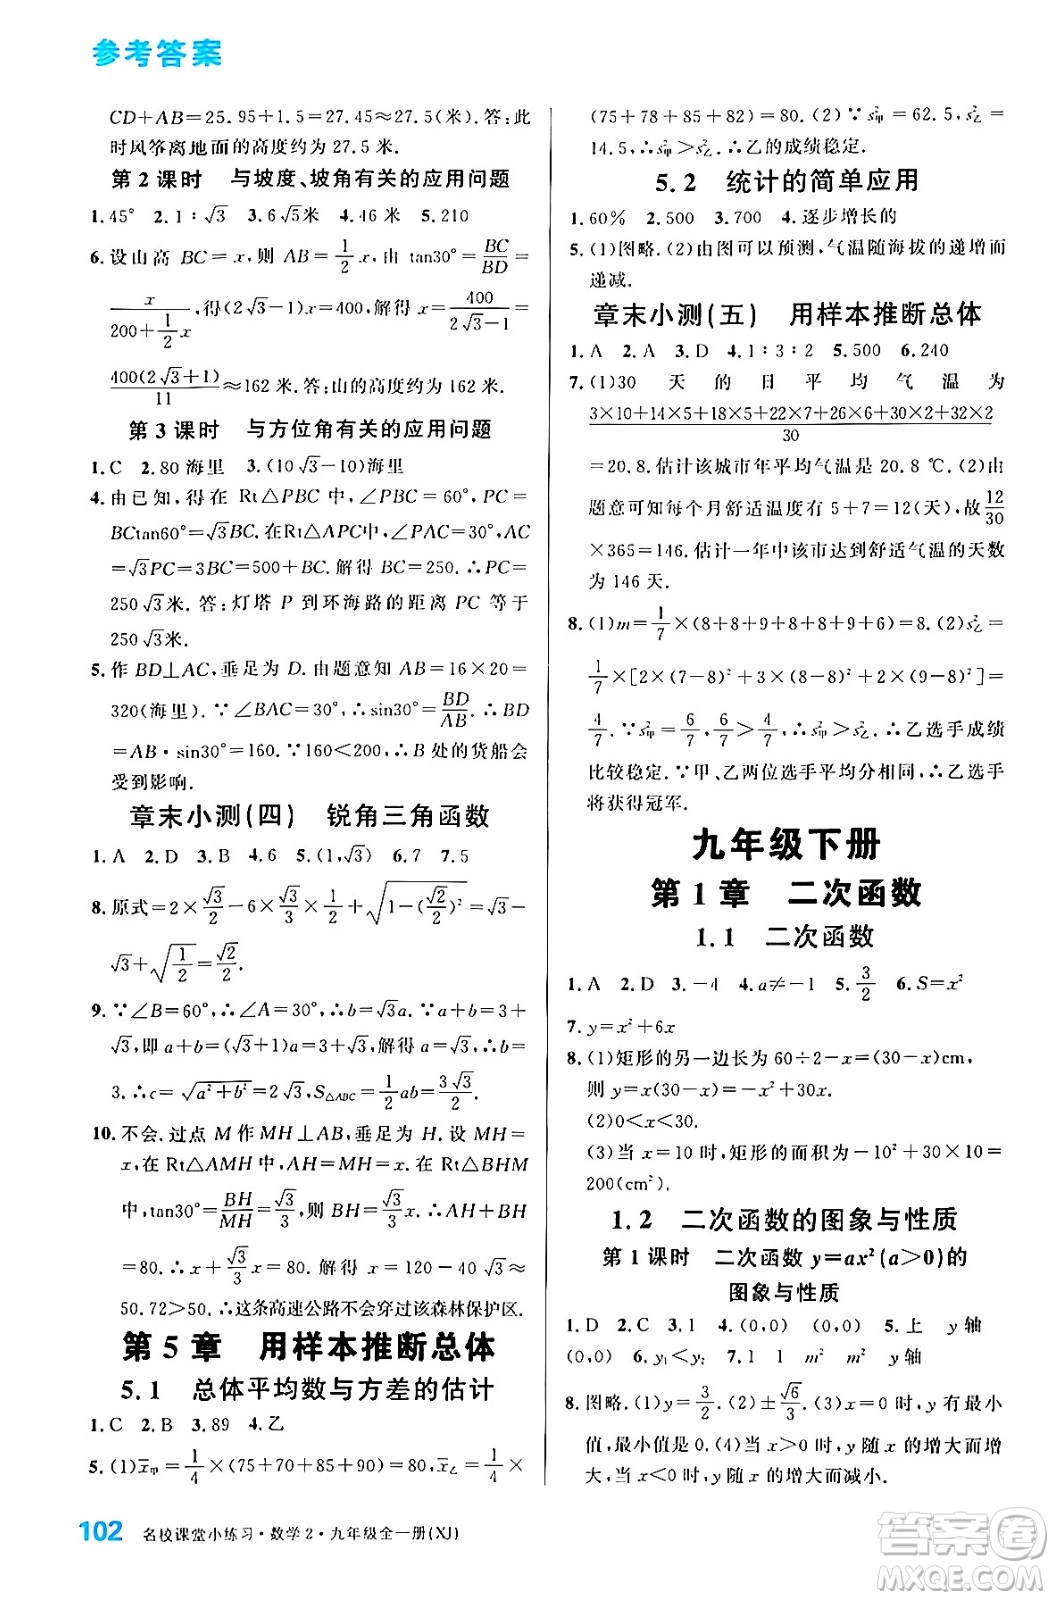 参考答案
CD+AB=25.95+1.5=27.45≈27.5(米).答:此
时风筝离地面的高度约为 27.5 米.
第 2 课时 与坡度、坡角有关的应用问题
1.45° 2.1∶√3 3.6√5米 4.46 米 5.210
6.设山高 BC=x,则 AB=1/2x,由 tan30°=BC/BD=
x/(200+1/2x),得(2√3-1)x=400,解得 x=400/(2√3-1)=
400(2√3+1)/11≈162 米.答:山的高度约为 162 米.
第 3 课时 与方位角有关的应用问题
1.C 2.80 海里 3.(10√3-10)海里
4.由已知,得在 Rt△PBC 中,∠PBC=60°,PC=
BCtan60°=√3BC.在Rt△APC中,∠PAC=30°,
AC=√3PC=3BC=500+BC.解得 BC=250.PC=
250√3米.答:灯塔 P 到环海路的距离 PC 等于
250√3米.
5.作 BD⊥AC,垂足为 D.由题意知 AB=16×20=
320(海里).∵∠BAC=30°,∴sin30°=BD/AB.∴BD
=AB·sin30°=160.∵160<200,∴B 处的货船会
受到影响.
章末小测(四) 锐角三角函数
1.A 2.D 3.B 4.6 5.(1,√3) 6.7 7.5
8.原式=2×√3/2-6×√3/3×√3/2+√(1-(√2/2)²)=√3-
√3+√(1/2)=√2/2.
9.∵∠B=60°,∴∠A=30°,∴b=√3a.∵a+b=3+
√3,即 a+√3a=(√3+1)a=3+√3,∴a=√3,∴b=
3.∴c=√(a²+b²)=2√3,S△ABC=1/2ab=3√3/2.
10.不会.过点 M 作 MH⊥AB,垂足为 H.设 MH=
x,在 Rt△AMH 中,AH=MH=x.在 Rt△BHM
中,tan30°=BH/MH=√3/3,所以 BH=√3/3x,∴AH+BH
=80.∴x+√3/3x=80.解得 x=120-40√3≈
50.72>50.∴这条高速公路不会穿过该森林保护区.
第 5 章 用样本推断总体
5.1 总体平均数与方差的估计
1.C 2.B 3.89 4.乙
5.(1)x̄甲=1/4×(75+70+85+90)=80,x̄乙=1/4×
(75+78+85+82)=80.(2)∵s²甲=62.5,s²乙=
14.5,∴s²甲>s²乙.∴乙的成绩稳定.
5.2 统计的简单应用
1.60% 2.500 3.700 4.逐步增长的
5.(1)图略.(2)由图可以预测,气温随海拔的递增而
递减.
章末小测(五) 用样本推断总体
1.A 2.A 3.D 4.1∶3∶2 5.500 6.240
7.(1)30 天的日平均气温为
(3×10+14×5+18×5+22×5+2×30+32×2)/30
=20.8.估计该城市年平均气温是 20.8 ℃.(2)由
题意可知每个月舒适温度有 5+7=12(天),故12/30
×365=146.估计一年中该市达到舒适气温的天数
为 146 天.
8.(1)m=1/7×(8+8+9+8+8+7+8)=8.(2)s²乙=
1/7×[2×(7-8)²+3×(8-8)²+2×(9-8)²]=
4/7.∵s²甲=6/7,6/7>4/7,∴s²甲>s²乙.∴乙选手成绩
比较稳定.∵甲、乙两位选手平均分相同,∴乙选手
将获得冠军.
九年级下册
第 1 章 二次函数
1.1 二次函数
1.A 2.D 3.-4 4.a≠-1 5.3/2 6.S=x²
7.y=x²+6x
8.(1)矩形的另一边长为 60÷2-x=(30-x)cm,
则 y=x(30-x)=-x²+30x.
(2)0<x<30.
(3)当 x=10 时,矩形的面积=-10²+30×10=
200(cm²).
1.2 二次函数的图象与性质
第 1 课时 二次函数 y=ax²(a>0)的
图象与性质
1.D 2.C 3.1 4.(0,0) (0,0) 5.上 y 轴
(0,0) 6.y₁<y₂ 7.1 1 m² m² y 轴
8.图略.(1)y=3/2.(2)±√6/3.(3)当 x=0 时,y 有最小
值,最小值是 0.(4)当 x>0 时,y 随 x 的增大而增大,
当 x<0 时,y 随 x 的增大而减小.
102 名校课堂小练习·数学2·九年级全一册(XJ)
答案圈
MXQE.COM